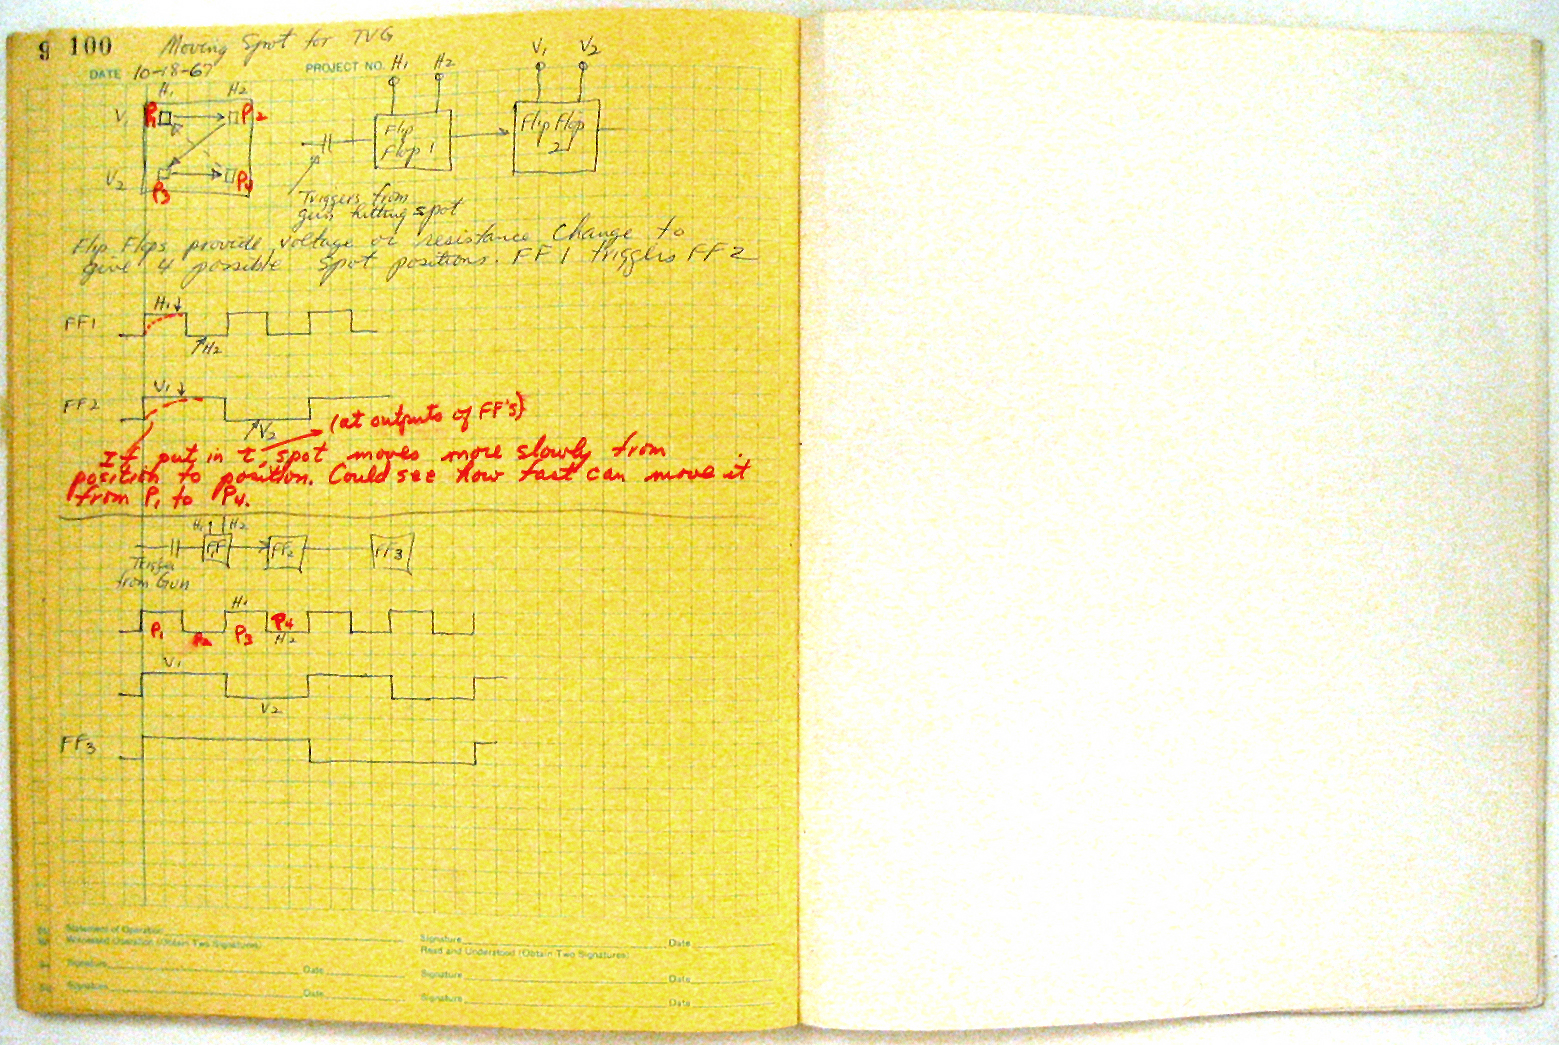 9 100 Moving Spot for TVG
DATE 10-18-67 PROJECT NO.
H1 H2
V1 P1 P2
V2 P3 P4
H1 H2
Flip Flop 1
V1 V2
Flip Flop 2
Triggers from
gun hitting spot
Flip Flops provide voltage or resistance change to
give 4 possible spot positions. FF1 triggers FF2
H1
FF1
H2
V1
FF2
V2
(at outputs of FF's)
If put in τ, spot moves more slowly from
position to position. Could see how fast can move it
from P1 to P4.
H1 H2
FF1 FF2 FF3
Trigger
from Gun
H1
P1 P2 P3 P4
H2
V1
V2
FF3
Statement of Operation
Witnessed Operation (Obtain Two Signatures)
Signature Date
Signature Date
Signature Date
Read and Understood (Obtain Two Signatures)
Signature Date
Signature Date